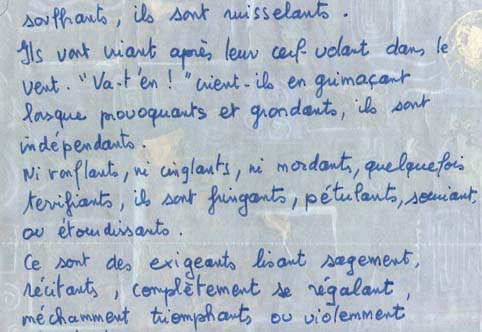 souffrants, ils sont ruisselants.
Ils vont riant après leur cerf-volant dans le
vent. "Va-t'en !" crient-ils en grimaçant
lorsque provoquants et grondants, ils sont
indépendants.
Ni ronflants, ni cinglants, ni mordants, quelquefois
terrifiants, ils sont fringants, pétulants, souriant,
ou étourdissants.
Ce sont des exigeants lisant sagement,
récitants, complètement se régalant,
méchamment triomphants ou violemment